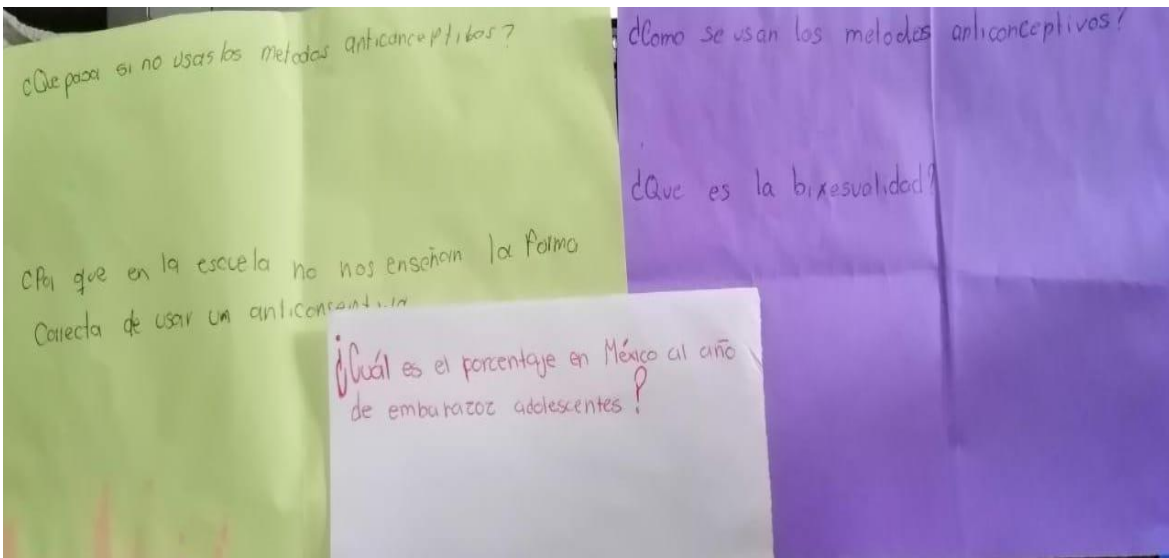 ¿Que pasa si no usas los metodos anticonceptibos?
¿Por que en la escuela no nos enseñan la forma
Correcta de usar un
¿Como se usan los metodos anticonceptivos?
¿Que es la bixesualidad?
¿Cuál es el porcentaje en México al año
de embarazoz adolescentes?